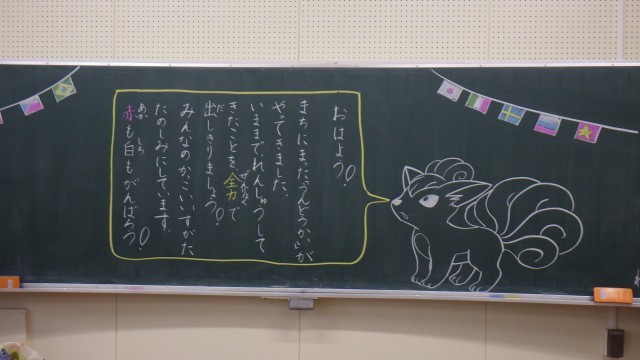 おはよう!
まちにまった「うんどうかい」が
やってきました。
いままでれんしゅうして
きたことを全力で
ぜんりょく
出しきりましょう!
だ
みんなのかっこいいすがた
たのしみにしています。
赤も白もがんばろう!
あか しろ